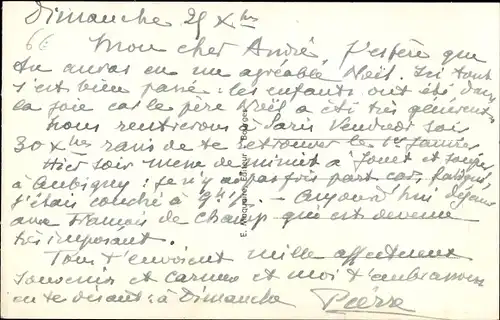 Dimanche 25 Xbre
66
Mon cher André, J'espère que
tu auras eu un agréable Noël. Ici tout
s'est bien passé : les enfants ont été dans
la joie car le père Noël a été très généreux
Nous rentrerons à Paris Vendredi soir
30 Xbre ravis de te retrouver le 1er Janvier
Hier soir messe de minuit à et souper
à Aubigny : je n'y ai pas pris part car, fatigué,
j'étais couché à 9h½. – Aujourd'hui déjeuner
avec François de Champ qui est devenu
très imposant.
Tous t'envoient mille affectueux
souvenirs et Carmen et moi t'embrassons
en te disant : à Dimanche Pierre
E. Maquaire, Editeur, Bourges